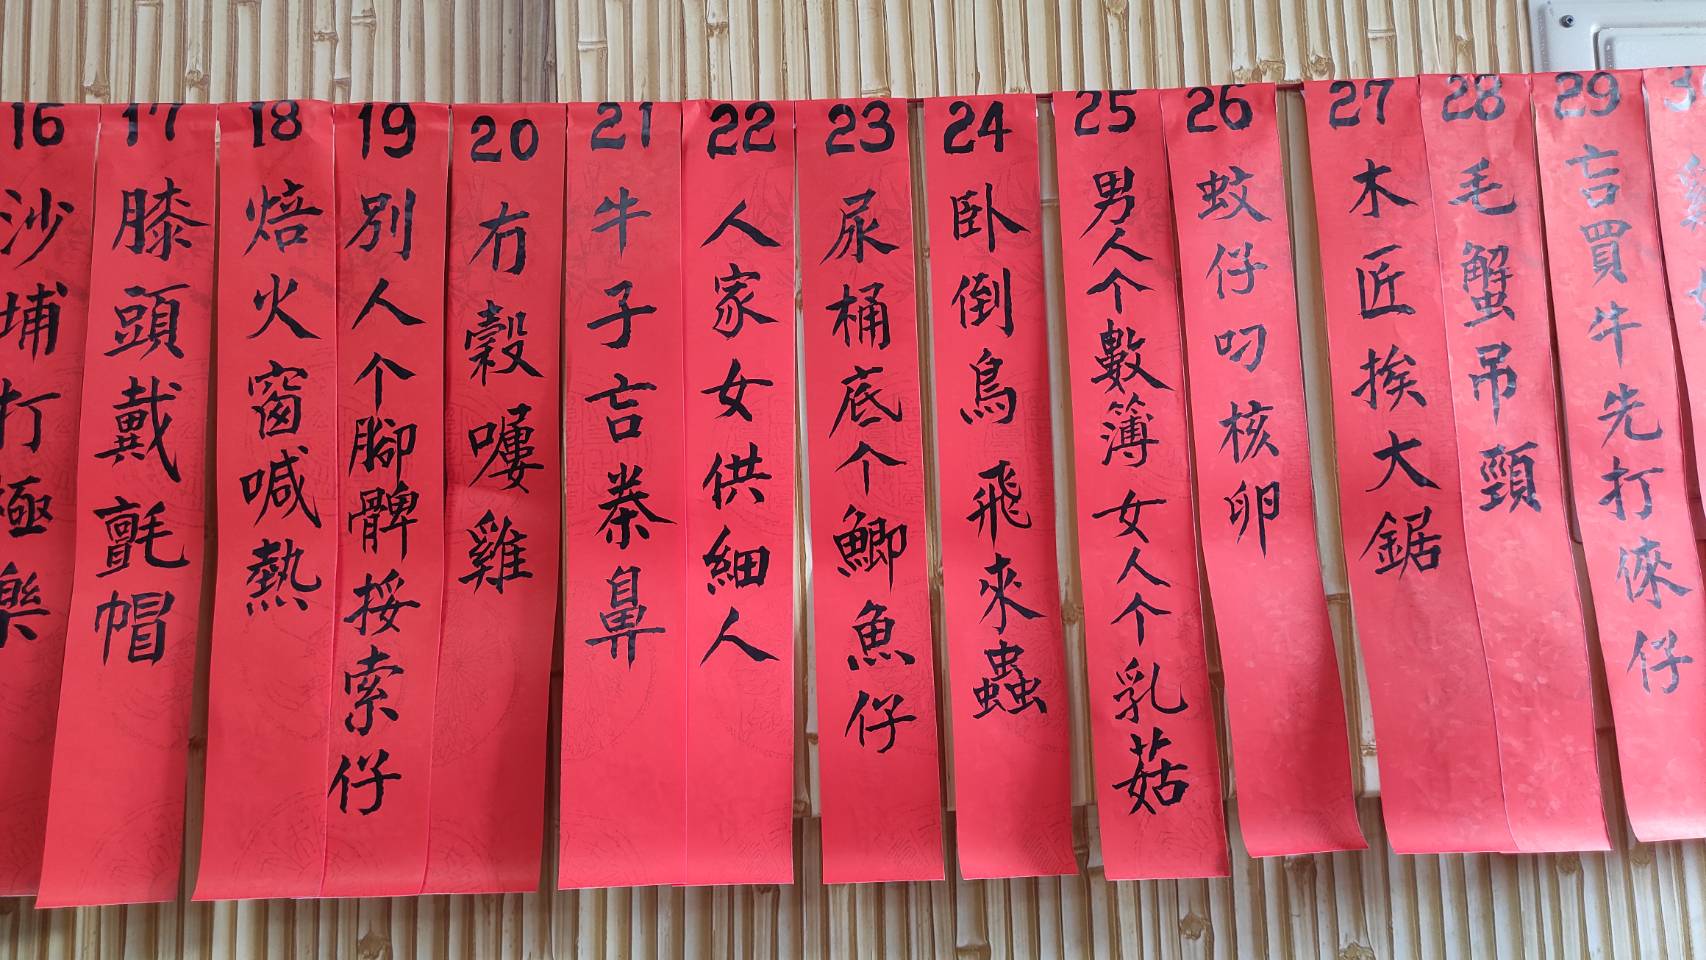 16 沙埔打極樂
17 膝頭戴氈帽
18 焙火窗喊熱
19 別人个腳髀挼索仔
20 冇穀囉雞
21 牛子吂桊鼻
22 人家女供細人
23 尿桶底个鯽魚仔
24 臥倒鳥飛來蟲
25 男人个數簿女人个乳菇
26 蚊仔叼核卵
27 木匠挨大鋸
28 毛蟹吊頸
29 吂買牛先打倈仔